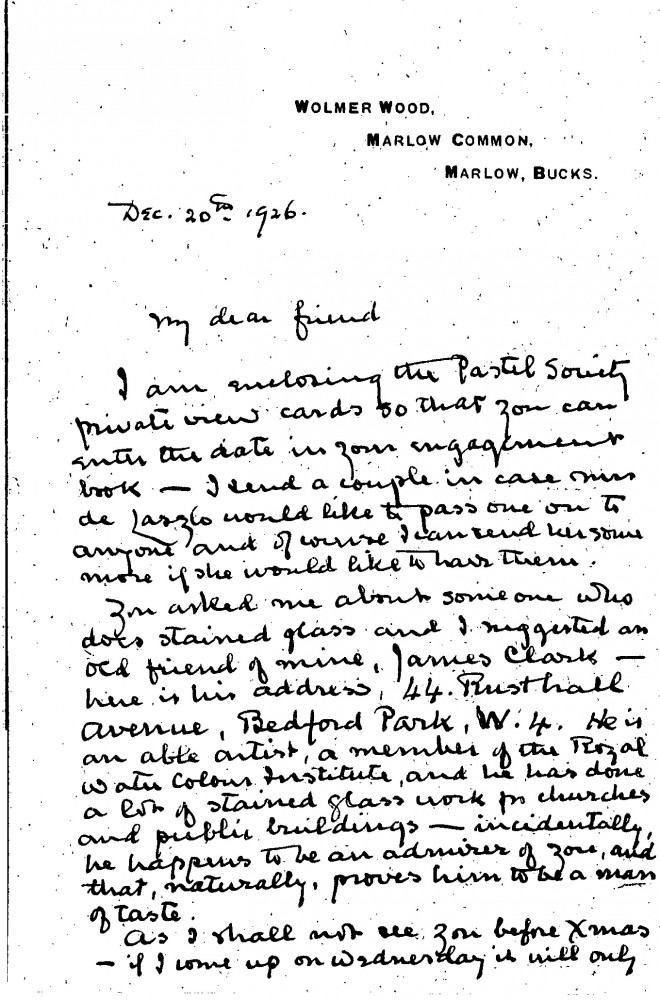 WOLMER WOOD,
MARLOW COMMON,
MARLOW, BUCKS.
Dec. 20th 1926.
My dear friend
I am enclosing the Pastel Society
private view cards so that you can
enter the date in your engagement
book — I send a couple in case Mrs
de Laszlo would like to pass one on to
anyone and of course I can send her some
more if she would like to have them.
You asked me about someone who
does stained glass and I suggested an
old friend of mine, James Clark —
here is his address, 44. Rusthall
Avenue, Bedford Park, W.4. He is
an able artist, a member of the Royal
Water Colour Institute, and he has done
a lot of stained glass work for churches
and public buildings — incidentally,
he happens to be an admirer of you, and
that, naturally, proves him to be a man
of taste.
As I shall not see you before Xmas
— if I come up on Wednesday it will only